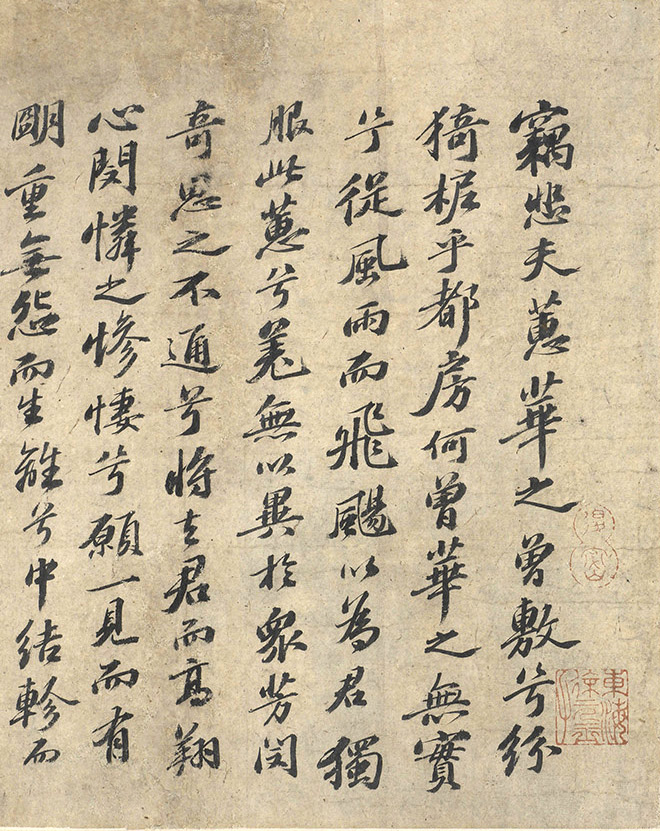 竊悲夫蕙華之曾敷兮紛
猗柅乎都房何曾華之無實
兮從風雨而飛颺以為君獨
服此蕙兮羌無以異於眾芳閔
奇思之不通兮將去君而高翔
心閔憐之慘悽兮願一見而有
明重無怨而生離兮中結軫而
東海